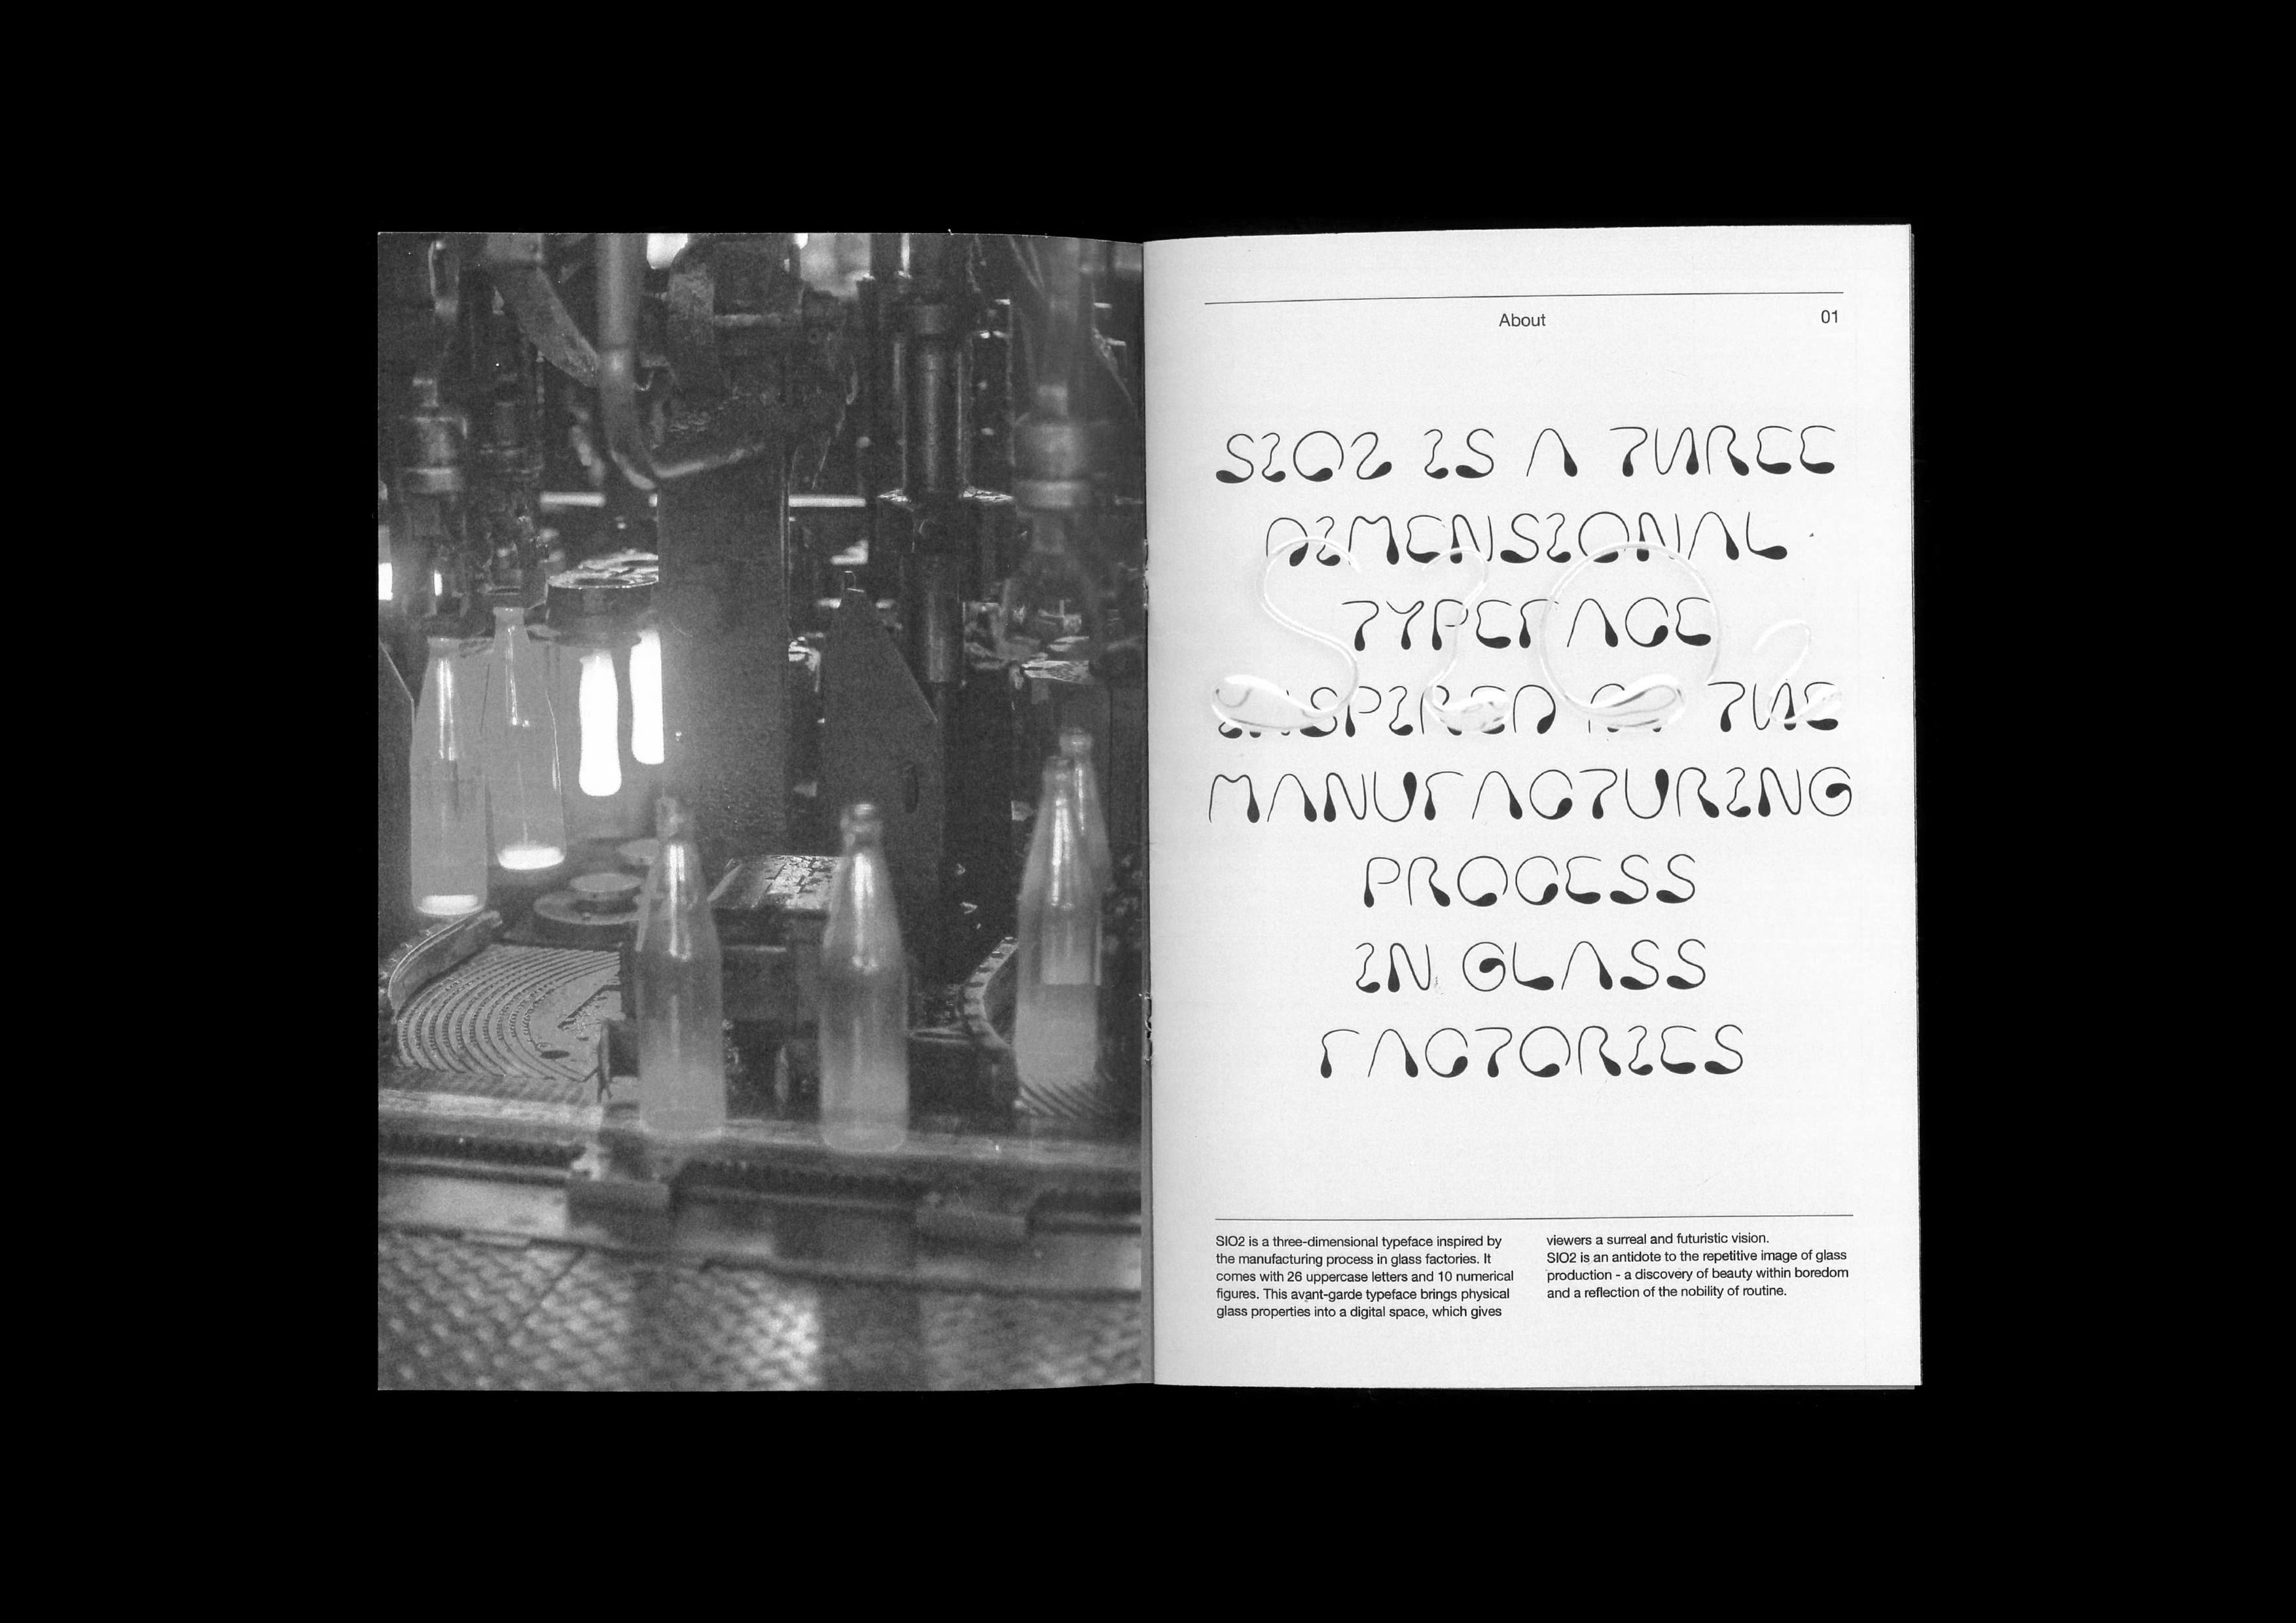 About
01
SIO2 IS A THREE
DIMENSIONAL
TYPEFACE
INSPIRED BY THE
MANUFACTURING
PROCESS
IN GLASS
FACTORIES
SIO2
SIO2 is a three-dimensional typeface inspired by
the manufacturing process in glass factories. It
comes with 26 uppercase letters and 10 numerical
figures. This avant-garde typeface brings physical
glass properties into a digital space, which gives
viewers a surreal and futuristic vision.
SIO2 is an antidote to the repetitive image of glass
production - a discovery of beauty within boredom
and a reflection of the nobility of routine.